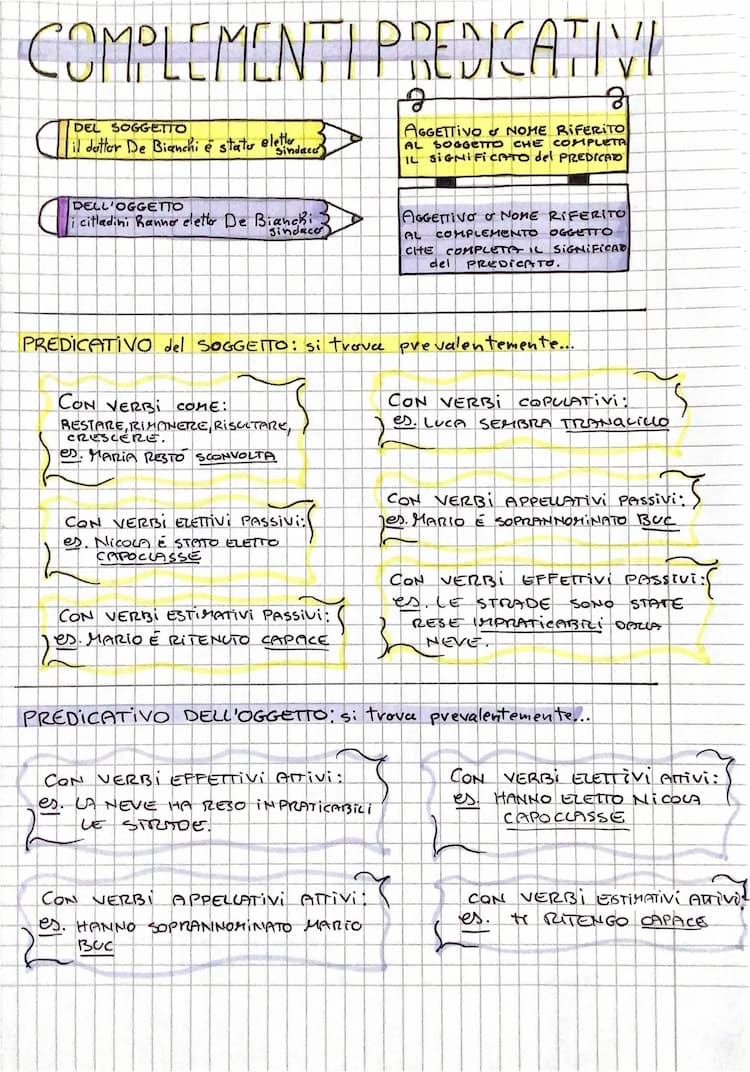 COMPLEMENTI PREDICATIVI
DEL SOGGETTO
il dottor De Bianchi é stato eletto
sindaco
AGGETTIVO o NOME RIFERITO
AL SOGGETTO CHE COMPLETA
IL SIGNIFICATO del PREDICATO
DELL'OGGETTO
i cittadini hanno eletto De Bianchi
sindaco
AGGETTIVO o NOME RIFERITO
AL COMPLEMENTO OGGETTO
CHE COMPLETA IL SIGNIFICATO
del PREDICATO.
PREDICATIVO del SOGGETTO: si trova prevalentemente...
CON VERBI COME:
RESTARE, RIMANERE, RISULTARE,
CRESCERE.
es. MARIA RESTÓ SCONVOLTA
CON VERBI ELETTIVI PASSIVI:
es. NICOLA É STATO ELETTO
CAPOCLASSE
CON VERBI ESTIMATIVI PASSIVI:
es. MARIO É RITENUTO CAPACE
CON VERBI COPULATIVI:
es. LUCA SEMBRA TRANQUILLO
CON VERBI APPELLATIVI PASSIVI:
es. MARIO É SOPRANNOMINATO BUC
CON VERBI EFFETTIVI PASSIVI:
es. LE STRADE SONO STATE
RESE IMPRATICABILI DALLA
NEVE.
PREDICATIVO DELL'OGGETTO: si trova prevalentemente...
CON VERBI EFFETTIVI ATTIVI:
es. LA NEVE HA RESO IMPRATICABILI
LE STRADE.
CON VERBI ELETTIVI ATTIVI:
es. HANNO ELETTO NICOLA
CAPOCLASSE
CON VERBI APPELLATIVI ATTIVI:
es. HANNO SOPRANNOMINATO MARIO
BUC
CON VERBI ESTIMATIVI ATTIVI:
es. TI RITENGO CAPACE